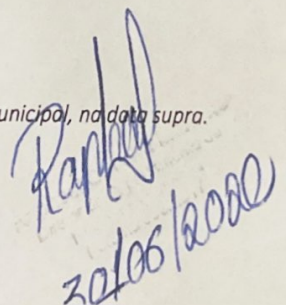 unicipal, na data supra.
Raphael
30/06/2020